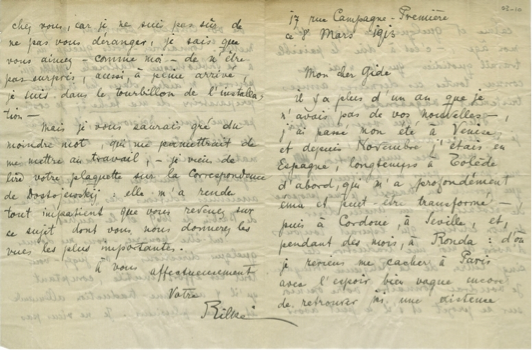 17 rue Campagne-Première
ce 8 Mars 1913
Mon cher Gide
il y a plus d'un an que je
n'avais pas de vos nouvelles –
j'ai passé mon été à Venise,
et depuis Novembre j'étais en
Espagne, longtemps à Tolède
d'abord, qui m'a profondément
ému et peut être transformé –
puis à Cordoue, à Séville, et,
pendant des mois, à Ronda : d'où
je reviens me cacher à Paris
avec l'espoir bien vague encore
de retrouver ici une distance
chez vous, car je ne suis pas sûr de
ne pas vous déranger, je sais que
vous aimez – comme moi – de n'être
pas surpris, aussi, à peine arrivé,
je suis dans le tourbillon de l'installa-
tion –
Mais je vous saurais gré du
moindre mot, qui me permettrait de
me mettre au travail, – je viens de
lire votre plaquette sur la Correspondance
de Dostojewskij, elle m'a rendu
tout impatient, que vous reveniez sur
ce sujet dont vous nous donnerez les
vues les plus importantes.
à vous affectueusement
Votre
Rilke